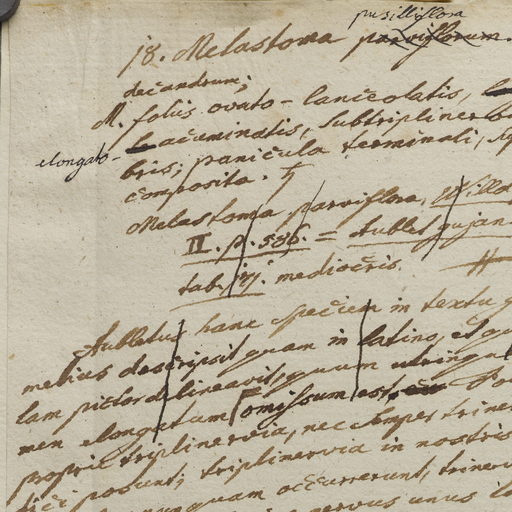 pusilliflora
18. Melastoma parviflorum.
decandrum;
M. foliis ovato-lanceolatis,
elongato-acuminatis, subtriplinerv
bris; panicula terminali,
composita. ♄
Melastoma parviflora, Willd
II. p. 586. = Aublet gujan
tab. mediocris.
Aubletus hanc speciem in textu
melius descripsit quam in latino, et
lam pictor delineavit, quum utringu
men elongatum omissum est,
proprie triplinervia, nec semper triner
fici possunt; triplinervia in nostris
nunquam occurrerunt, trinerv
nervus unus